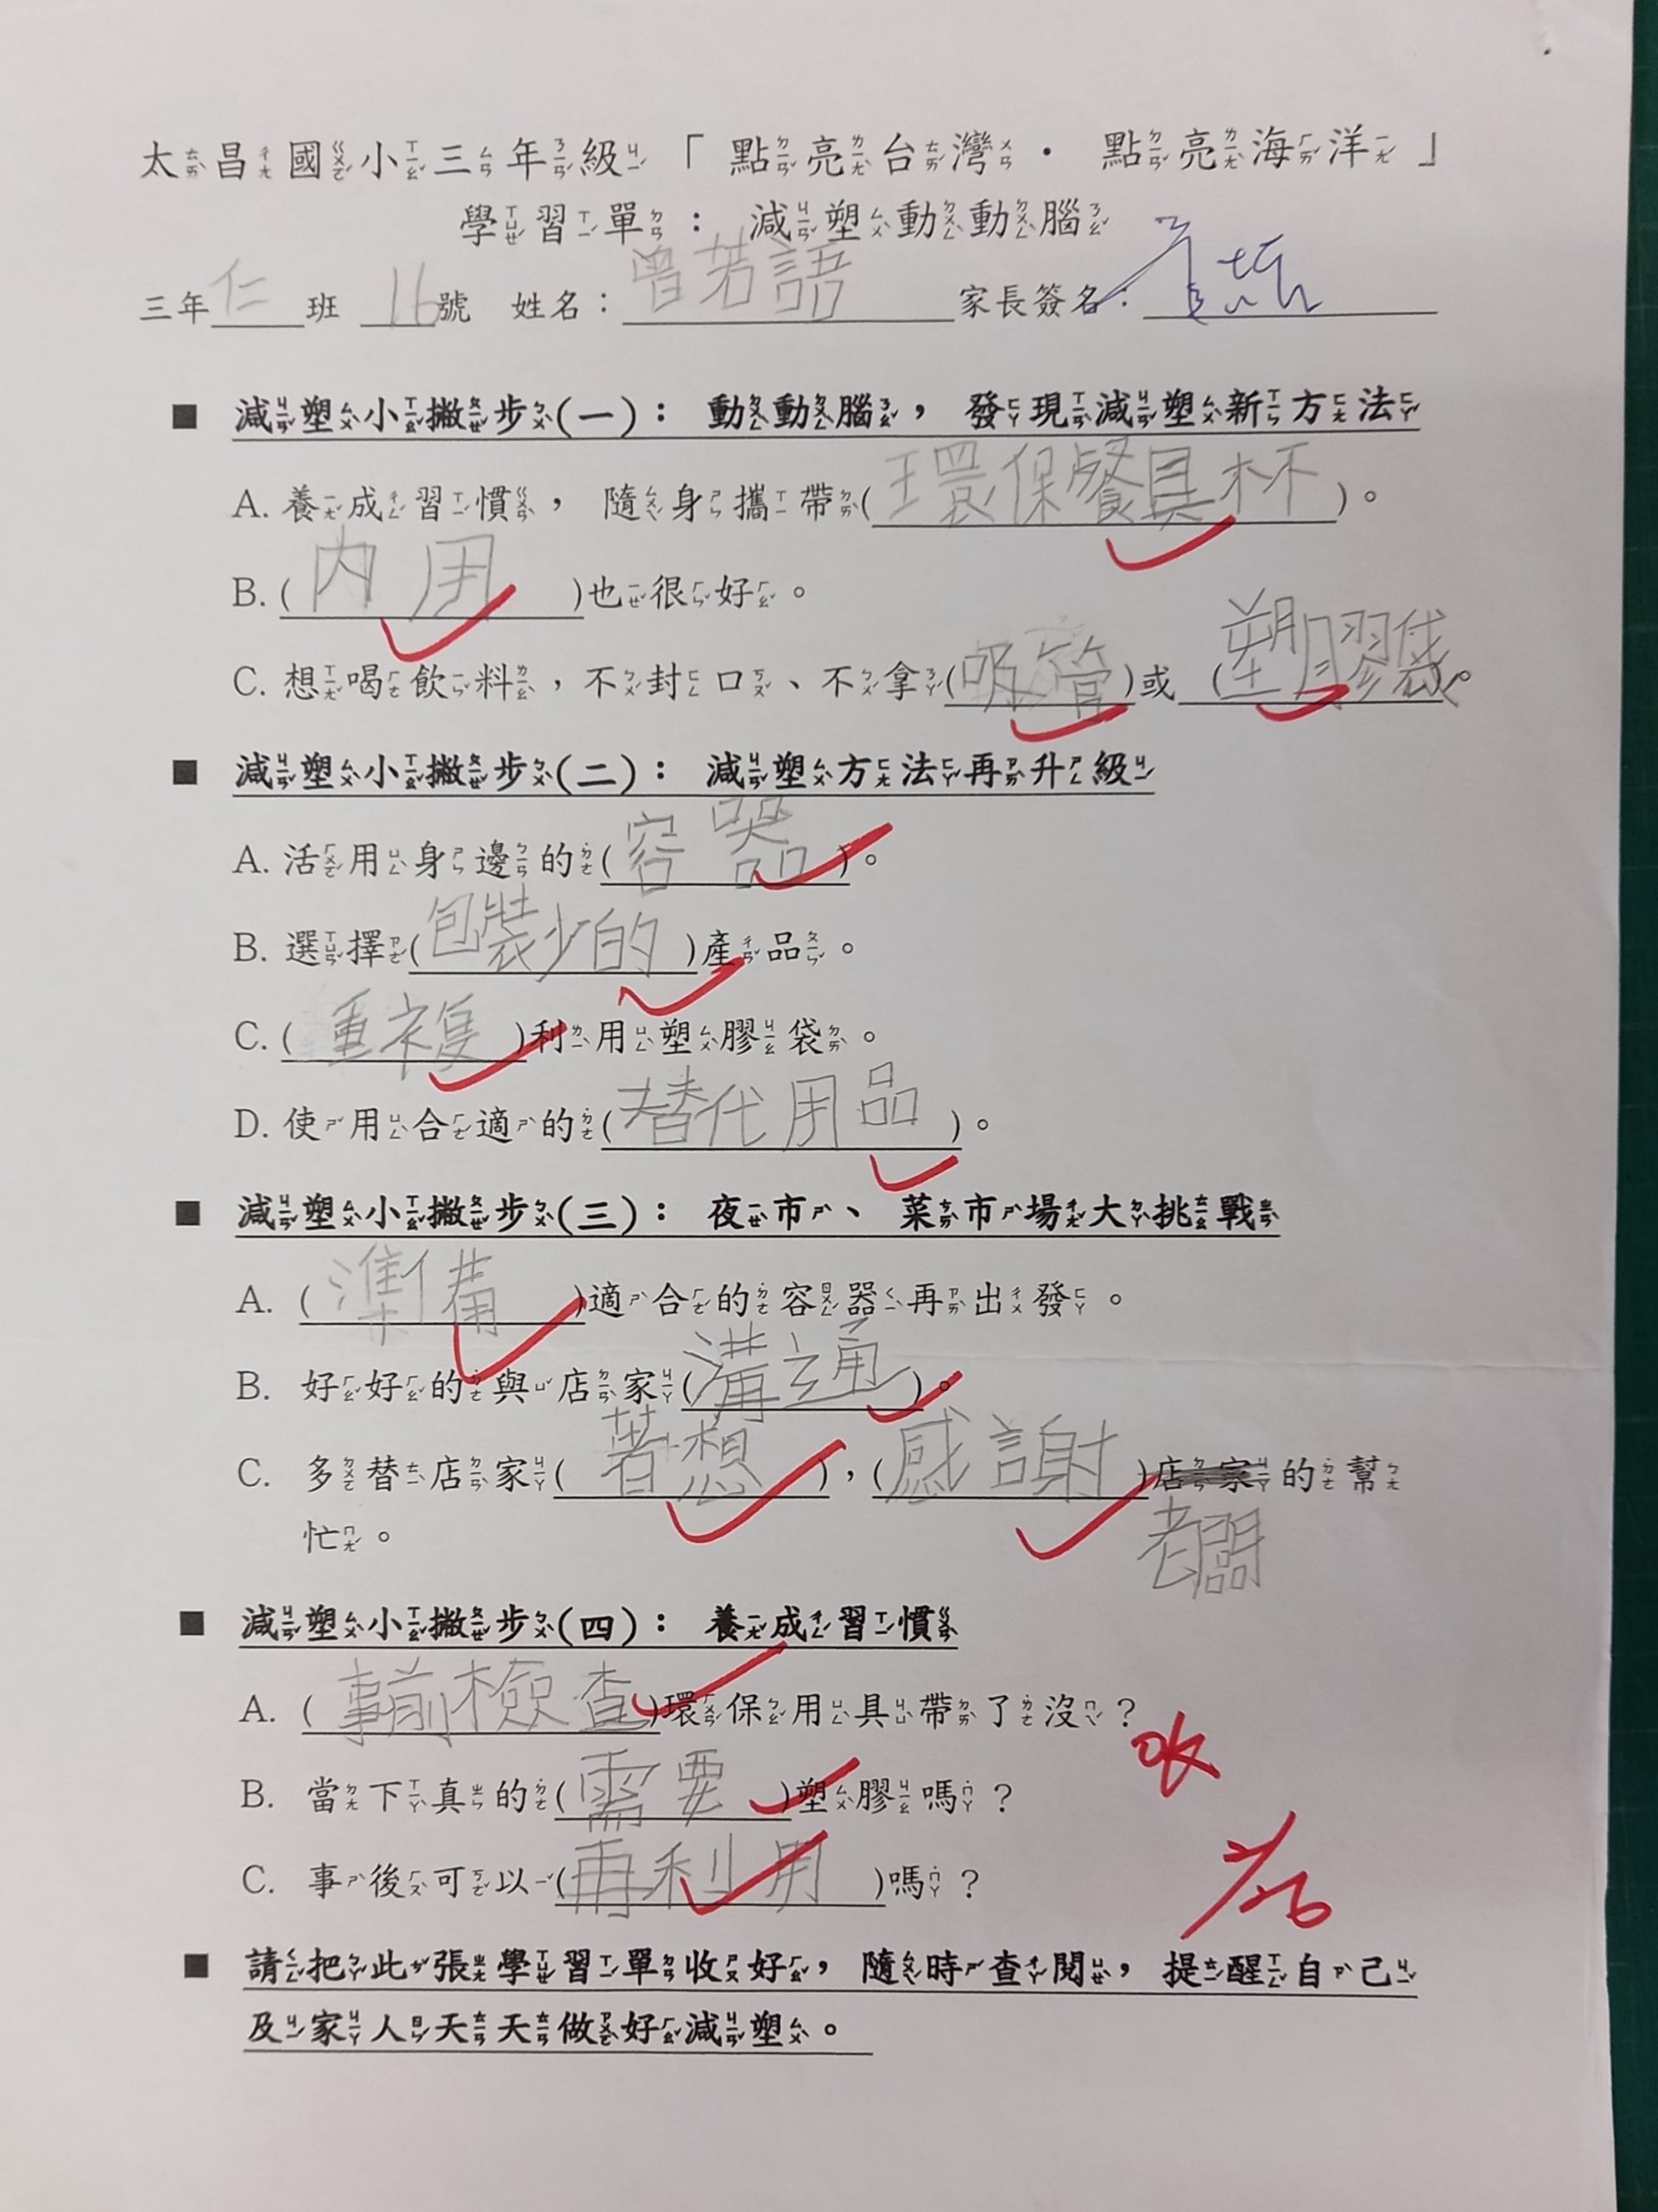 太昌國小三年級「點亮台灣・點亮海洋」
學習單：減塑動動腦
三年仁班 16號 姓名：曾若語 家長簽名：
■ 減塑小撇步(一)：動動腦，發現減塑新方法
A. 養成習慣，隨身攜帶(環保餐具杯)。
B. (內用)也很好。
C. 想喝飲料，不封口、不拿(吸管)或(塑膠袋)。
■ 減塑小撇步(二)：減塑方法再升級
A. 活用身邊的(容器)。
B. 選擇(包裝少的)產品。
C. (重複)利用塑膠袋。
D. 使用合適的(替代用品)。
■ 減塑小撇步(三)：夜市、菜市場大挑戰
A. (準備)適合的容器再出發。
B. 好好的與店家(溝通)。
C. 多替店家(著想)，(感謝)店家的幫
忙。 老闆
■ 減塑小撇步(四)：養成習慣
A. (事前檢查)環保用具帶了沒？
B. 當下真的(需要)塑膠嗎？
C. 事後可以(再利用)嗎？
■ 請把此張學習單收好，隨時查閱，提醒自己
及家人天天做好減塑。